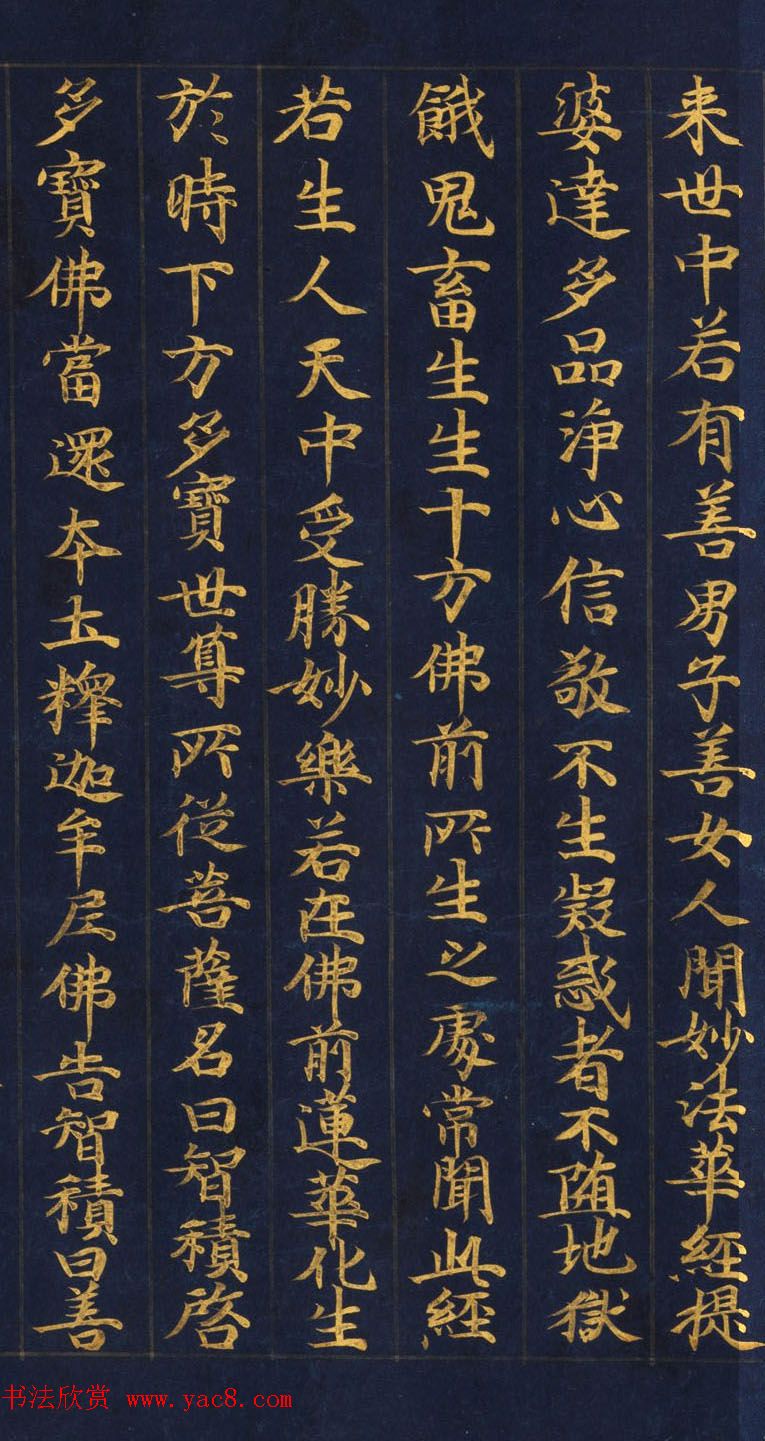 来世中若有善男子善女人聞妙法華經提
婆達多品淨心信敬不生疑惑者不墮地獄
餓鬼畜生生十方佛前所生之處常聞此經
若生人天中受勝妙樂若在佛前蓮華化生
於時下方多寶世尊所從菩薩名曰智積啓
多寶佛當還本土釋迦牟尼佛告智積曰善
书法欣赏 www.yac8.com